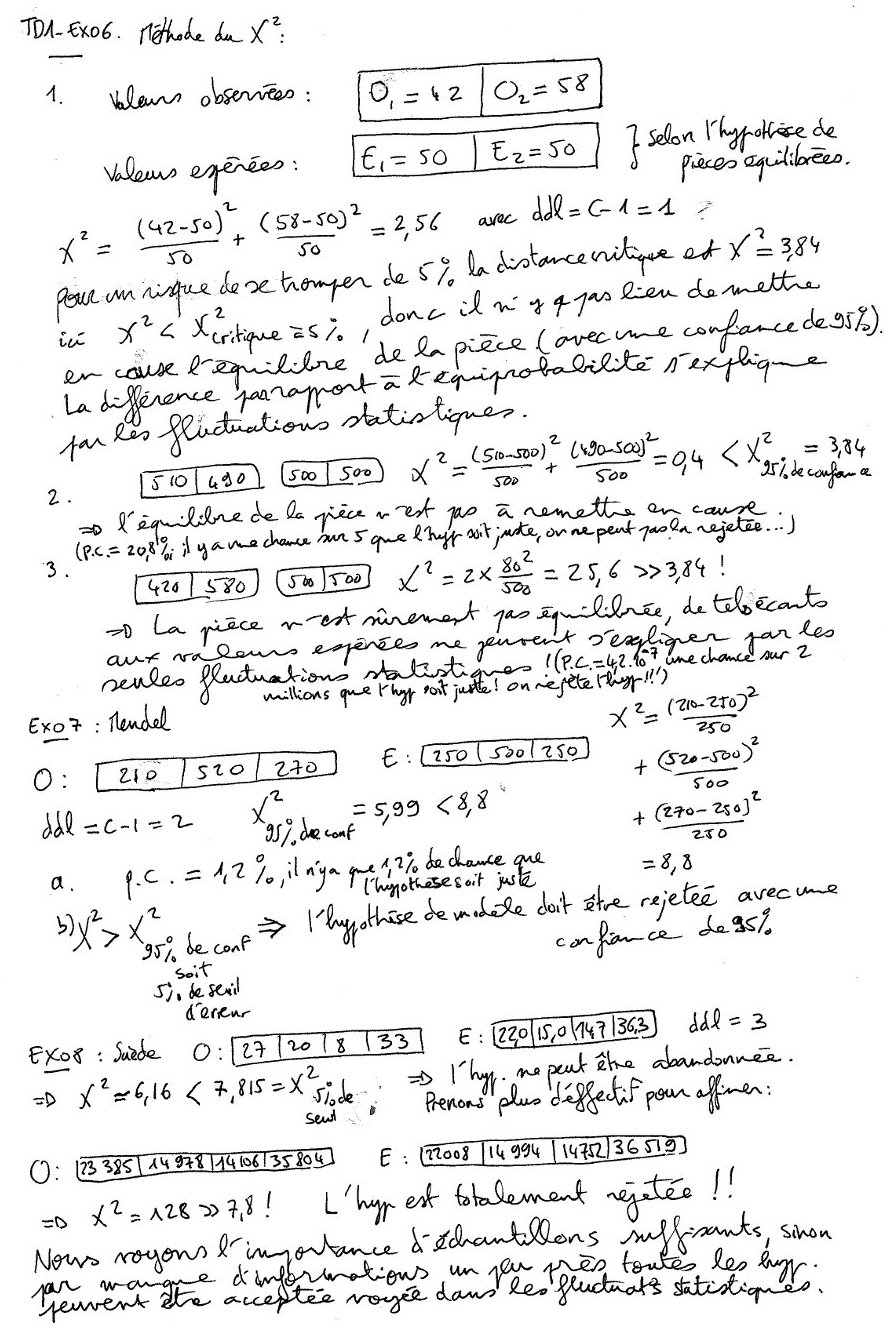 TD1-EX06. Méthode du X²:
1. Valeurs observées : O₁ = 42 | O₂ = 58
Valeurs espérées : E₁ = 50 | E₂ = 50 } Selon l'hypothèse de pièces equilibrées.
X² = (42-50)²/50 + (58-50)²/50 = 2,56 avec ddl = C-1 = 1
Pour un risque de se tromper de 5% la distance critique est X² = 3,84
ici X² < X²critique = 5%, donc il n'y a pas lieu de mettre
en cause l'équilibre de la pièce (avec une confiance de 95%).
La différence par rapport à l'équiprobabilité s'explique
par les fluctuations statistiques.
2. 510 | 490 500 | 500 X² = (510-500)²/500 + (490-500)²/500 = 0,4 < X²95% de confiance = 3,84
⇒ l'équilibre de la pièce n'est pas à remettre en cause.
(P.C. = 20,8% il y a une chance sur 5 que l'hyp soit juste, on ne peut pas la rejetée...)
3. 420 | 580 500 | 500 X² = 2 × 80²/500 = 25,6 >> 3,84 !
⇒ La pièce n'est sûrement pas équilibrée, de tels écarts
aux valeurs espérées ne peuvent s'expliquer par les
seules fluctuations statistiques ! (P.C. = 4,2.10⁻⁷ une chance sur 2
millions que l'hyp soit juste ! on rejète l'hyp !!')
Exo7 : Mendel
O : 210 | 520 | 270 E : 250 | 500 | 250
X² = (210-250)²/250
+ (520-500)²/500
+ (270-250)²/250
= 8,8
ddl = C-1 = 2 X²95% de conf = 5,99 < 8,8
a. p.c. = 1,2%, il n'y a que 1,2% de chance que
l'hypothèse soit juste
b) X² > X²95% de conf ⇒ l'hypothèse de modèle doit être rejeteé avec une
confiance de 95%
soit
5% de seuil
d'erreur
EXO8 : Suède O : 27 | 20 | 8 | 33 E : 22,0 | 15,0 | 14,7 | 36,3 ddl = 3
⇒ X² ≈ 6,16 < 7,815 = X²5% de seuil ⇒ l'hyp. ne peut être abandonnée.
Prenons plus d'éffectif pour affiner :
O : 23 385 | 14 978 | 14 106 | 35 804 E : 22008 | 14 994 | 14752 | 36 519
⇒ X² = 128 >> 7,8 ! L'hyp est totalement rejetée !!
Nous voyons l'importance d'échantillons suffisants, sinon
par manque d'informations un peu près toutes les hyp.
peuvent être acceptée noyée dans les fluctuats statistiques.